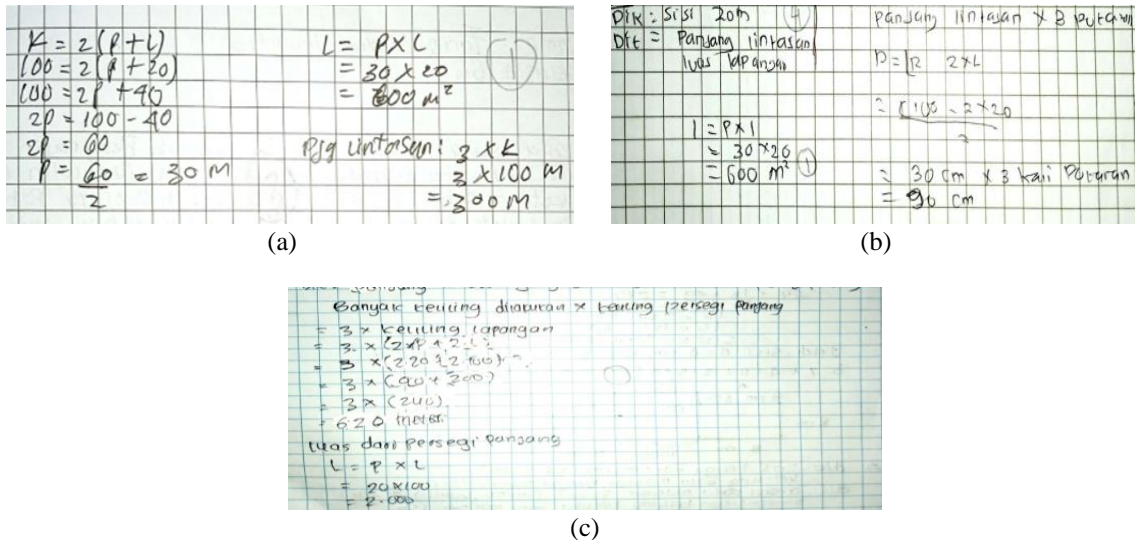 K = 2(P + L)
100 = 2(P + 20)
100 = 2P + 40
2P = 100 - 40
2P = 60
P = 60/2 = 30 M
L = P X L
= 30 X 20
= 600 m²
①
Psg Lintasan : 3 X K
3 X 100 M
= 300 M
(a)
Dik : Sisi 20m
Dit = Panjang lintasan
luas lapangan
④
l = P x l
= 30 x 20
= 600 m² ①
panjang lintasan x 3 putaran
2 x L
= 100 - 2 x 20
2
= 30 cm x 3 kali Putaran
= 90 cm
(b)
Banyak keliling x keliling persegi panjang
= 3 x keliling lapangan
= 3 x (2 x P + 2 . L)
= 3 x (2.20 + 2.100)
= 3 x (40 + 200)
= 3 x (240)
= 620 meter
luas dari persegi panjang
L = P x L
= 20 x 100
= 2.000
(c)